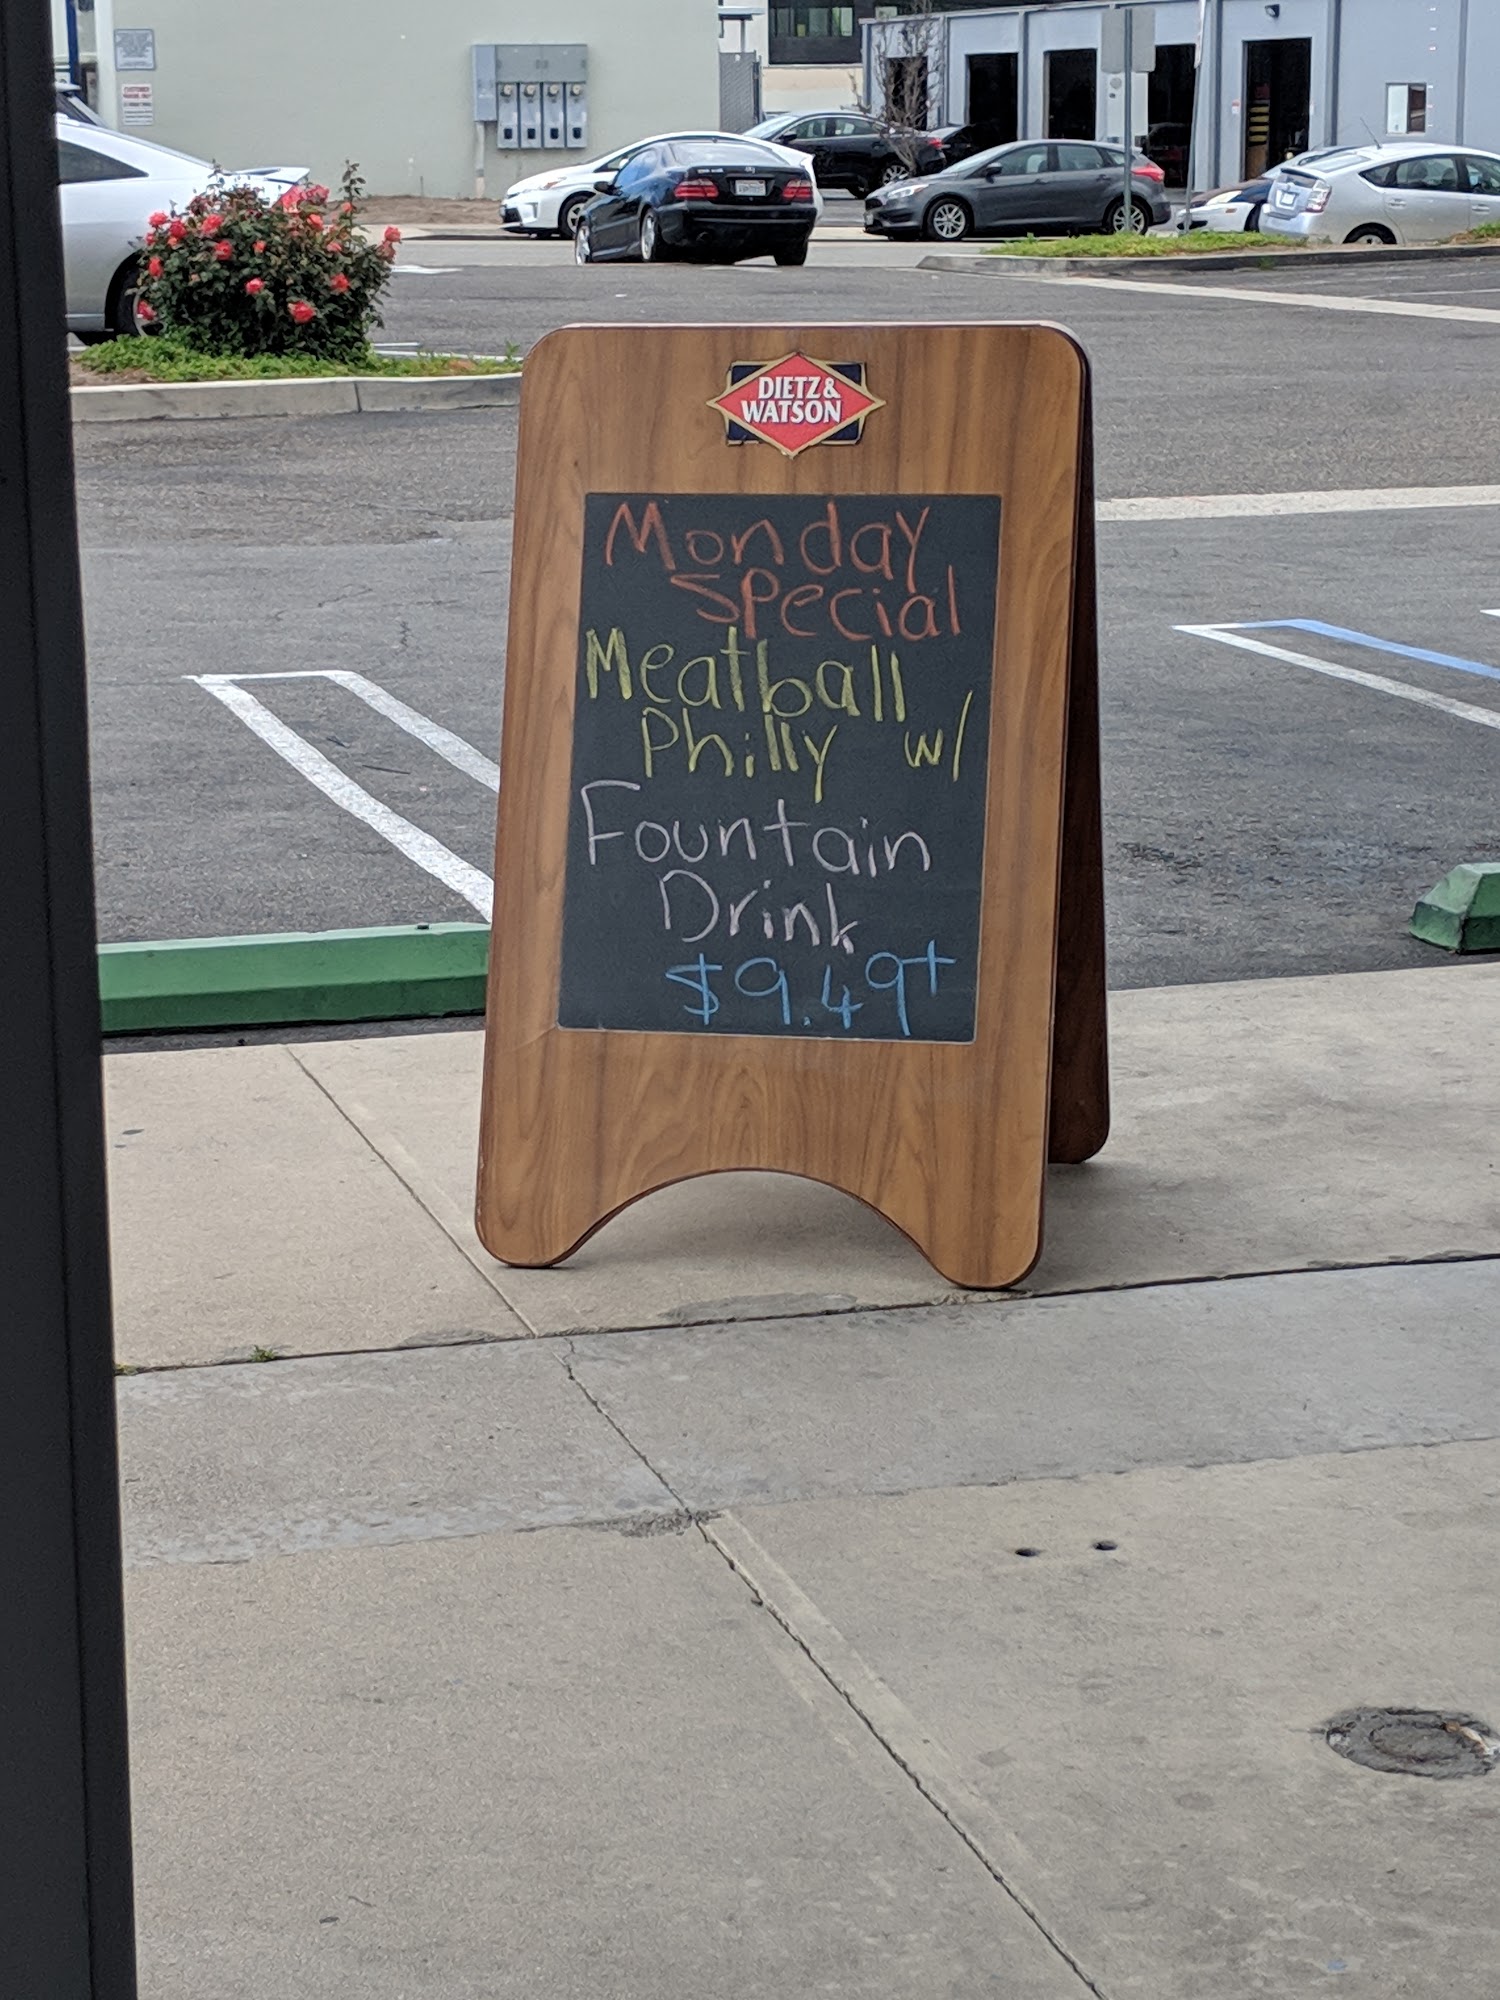 DIETZ &
WATSON
Monday
special
Meatball
Philly w/
Fountain
Drink
$9.49+